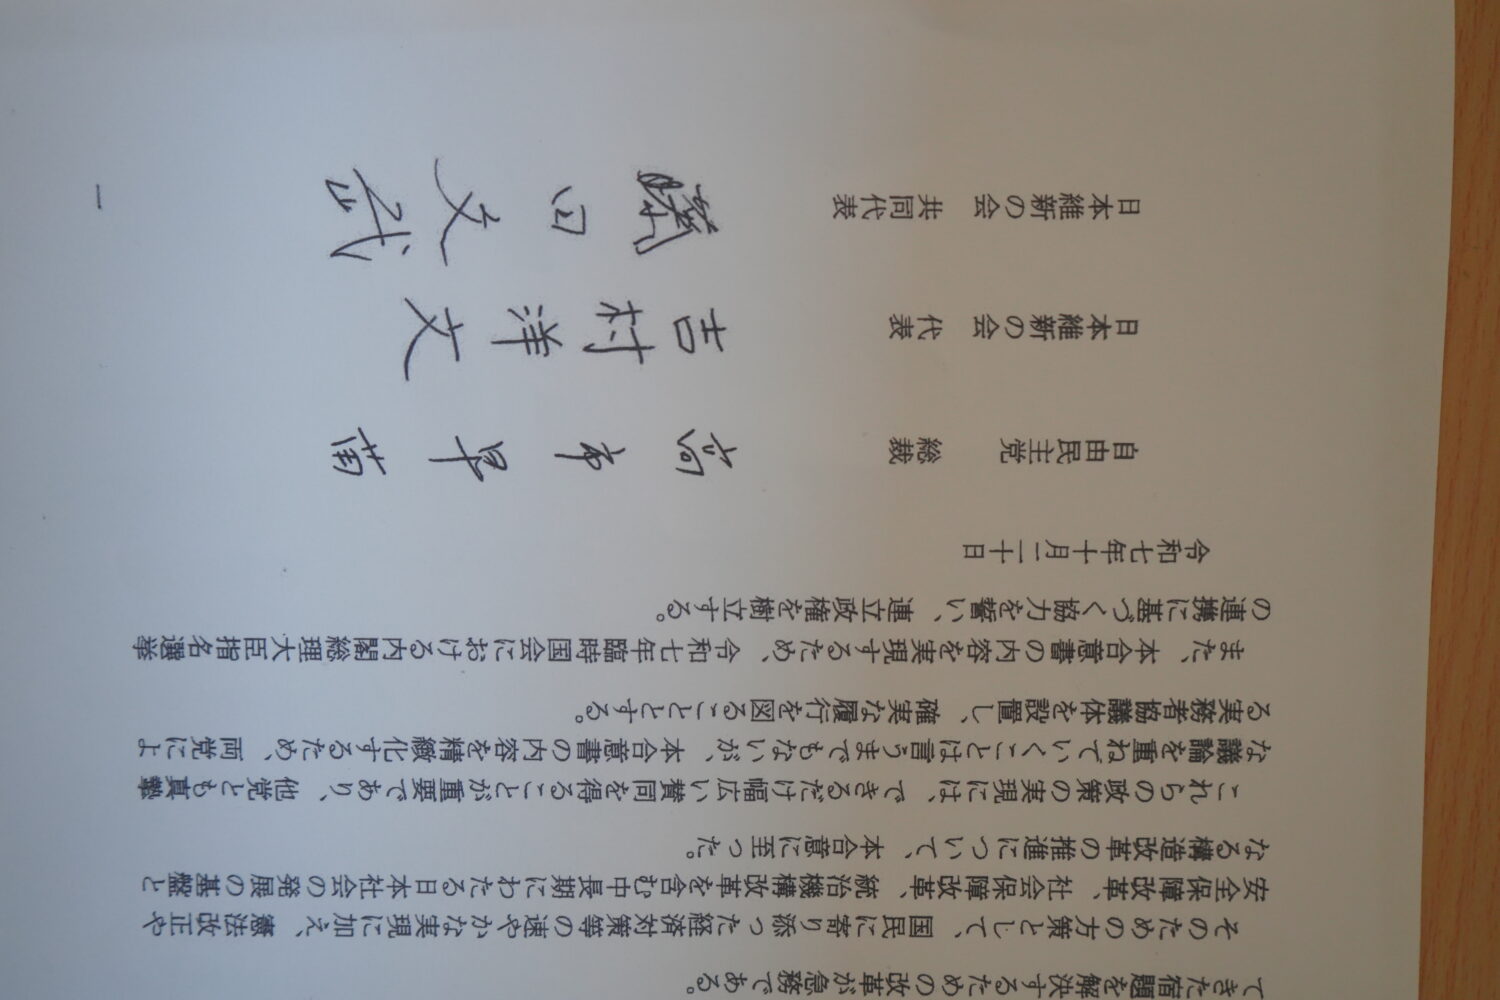 てきた宿題を解決するための改革が急務である。
そのための方策として、国民に寄り添った経済対策等の速やかな実現に加え、憲法改正や
安全保障改革、社会保障改革、統治機構改革を含む中長期にわたる日本社会の発展の基盤と
なる構造改革の推進について、本合意に至った。
これらの政策の実現には、できるだけ幅広い賛同を得ることが重要であり、他党とも真摯
な議論を重ねていくことは言うまでもないが、本合意書の内容を精緻化するため、両党によ
る実務者協議体を設置し、確実な履行を図ることとする。
また、本合意書の内容を実現するため、令和七年臨時国会における内閣総理大臣指名選挙
の連携に基づく協力を誓い、連立政権を樹立する。
令和七年十月二十日
自由民主党 総裁 高市早苗
日本維新の会 代表 吉村洋文
日本維新の会 共同代表 藤田文武
一